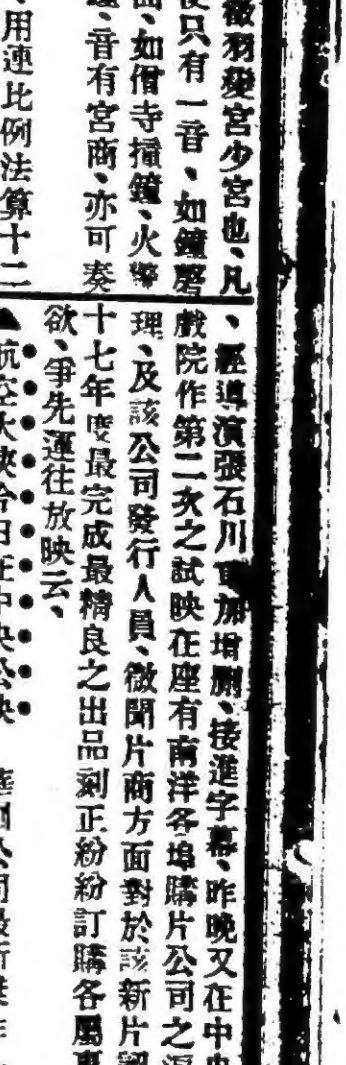 徵羽變宮少宮也、凡
只有一音、如鐘磬
如僧寺撞鐘、火警
音有宮商、亦可奏
、用連比例法算十二
、經導演張石川重加增刪、接進字幕、昨晚又在中央
戲院作第二次之試映在座有南洋各埠購片公司之
理、及該公司發行人員、微聞片商方面對於該新片
十七年度最完成最精良之出品刻正紛紛訂購各屬
欲、爭先運往放映云、
▲航空大俠今日在中央公映